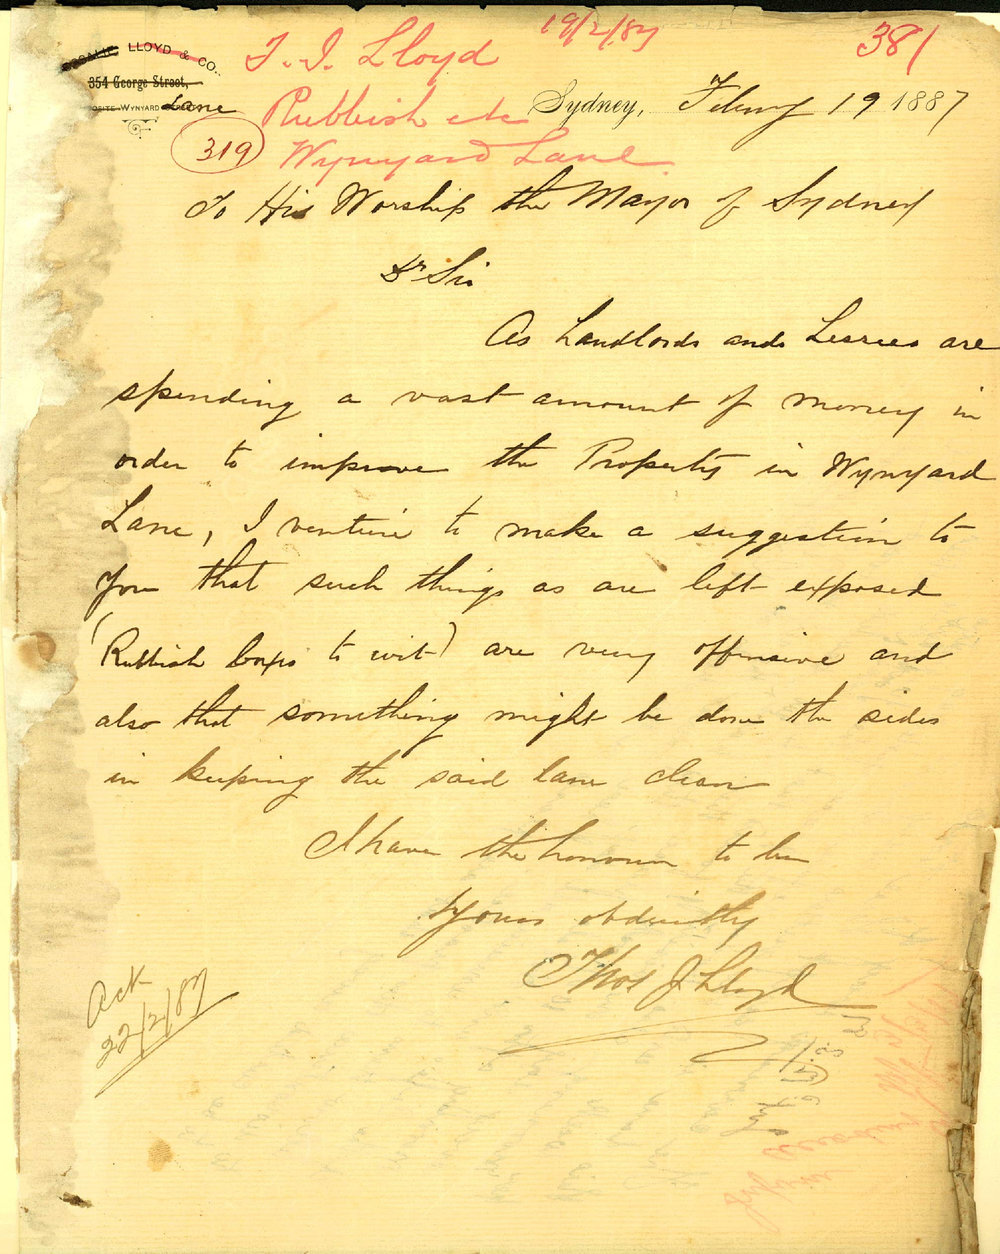 LLOYD & CO.
354 George Street,
OSITE WYNYARD
Lane
T. J. Lloyd
19/2/87
381
Rubbish etc
Wynyard Lane
319
Sydney, Feby 19 1887
To His Worship the Mayor of Sydney
Dr Sir
As Landlords and Lessees are
spending a vast amount of money in
order to improve the Property in Wynyard
Lane, I venture to make a suggestion to
you that such things as are left exposed
(Rubbish boxes to wit) are very offensive and
also that something might be done the sides
in keeping the said lane clean
I have the honour to be
Yours obdiently
Thos J. Lloyd
Ack
22/2/87